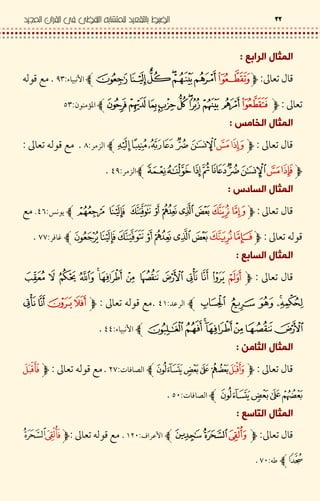 ٢٢ الضبط بالتقعيد للمتشابه اللفظي في القرآن المجيد
المثال الرابع :
قال تعالى: ﴿ وَتَقَطَّعُوٓا۟ أَمْرَهُم بَيْنَهُمْ ۖ كُلٌّ إِلَيْنَا رَٰجِعُونَ ﴾ الأنبياء: ٩٣ . مع قوله
تعالى : ﴿ فَتَقَطَّعُوٓا۟ أَمْرَهُم بَيْنَهُمْ زُبُرًا ۖ كُلُّ حِزْبٍۭ بِمَا لَدَيْهِمْ فَرِحُونَ ﴾ المؤمنون: ٥٣
المثال الخامس :
قال تعالى : ﴿ وَإِذَا مَسَّ ٱلْإِنسَٰنَ ضُرٌّ دَعَا رَبَّهُۥ مُنِيبًا إِلَيْهِ ﴾ الزمر: ٨ . مع قوله تعالى :
﴿ فَإِذَا مَسَّ ٱلْإِنسَٰنَ ضُرٌّ دَعَانَا ثُمَّ إِذَا خَوَّلْنَٰهُ نِعْمَةً ﴾ الزمر: ٤٩ .
المثال السادس :
قال تعالى : ﴿ وَإِمَّا نُرِيَنَّكَ بَعْضَ ٱلَّذِى نَعِدُهُمْ أَوْ نَتَوَفَّيَنَّكَ فَإِلَيْنَا مَرْجِعُهُمْ ﴾ يونس: ٤٦. مع
قوله تعالى : ﴿ فَإِمَّا نُرِيَنَّكَ بَعْضَ ٱلَّذِى نَعِدُهُمْ أَوْ نَتَوَفَّيَنَّكَ فَإِلَيْنَا يُرْجَعُونَ ﴾ غافر: ٧٧ .
المثال السابع :
قال تعالى : ﴿ أَوَلَمْ يَرَوْا۟ أَنَّا نَأْتِى ٱلْأَرْضَ نَنقُصُهَا مِنْ أَطْرَافِهَا ۚ وَٱللَّهُ يَحْكُمُ لَا مُعَقِّبَ
لِحُكْمِهِۦ ۚ وَهُوَ سَرِيعُ ٱلْحِسَابِ ﴾ الرعد: ٤١ .مع قوله تعالى : ﴿ أَفَلَا يَرَوْنَ أَنَّا نَأْتِى
ٱلْأَرْضَ نَنقُصُهَا مِنْ أَطْرَافِهَآ ۚ أَفَهُمُ ٱلْغَٰلِبُونَ ﴾ الأنبياء: ٤٤ .
المثال الثامن :
قال تعالى : ﴿ وَأَقْبَلَ بَعْضُهُمْ عَلَىٰ بَعْضٍ يَتَسَآءَلُونَ ﴾ الصافات: ٢٧ . مع قوله تعالى : ﴿ فَأَقْبَلَ
بَعْضُهُمْ عَلَىٰ بَعْضٍ يَتَسَآءَلُونَ ﴾ الصافات: ٥٠ .
المثال التاسع :
قال تعالى: ﴿ وَأُلْقِىَ ٱلسَّحَرَةُ سَٰجِدِينَ ﴾ الأعراف: ١٢٠ . مع قوله تعالى :﴿ فَأُلْقِىَ ٱلسَّحَرَةُ
سُجَّدًا ﴾ طه: ٧٠ .